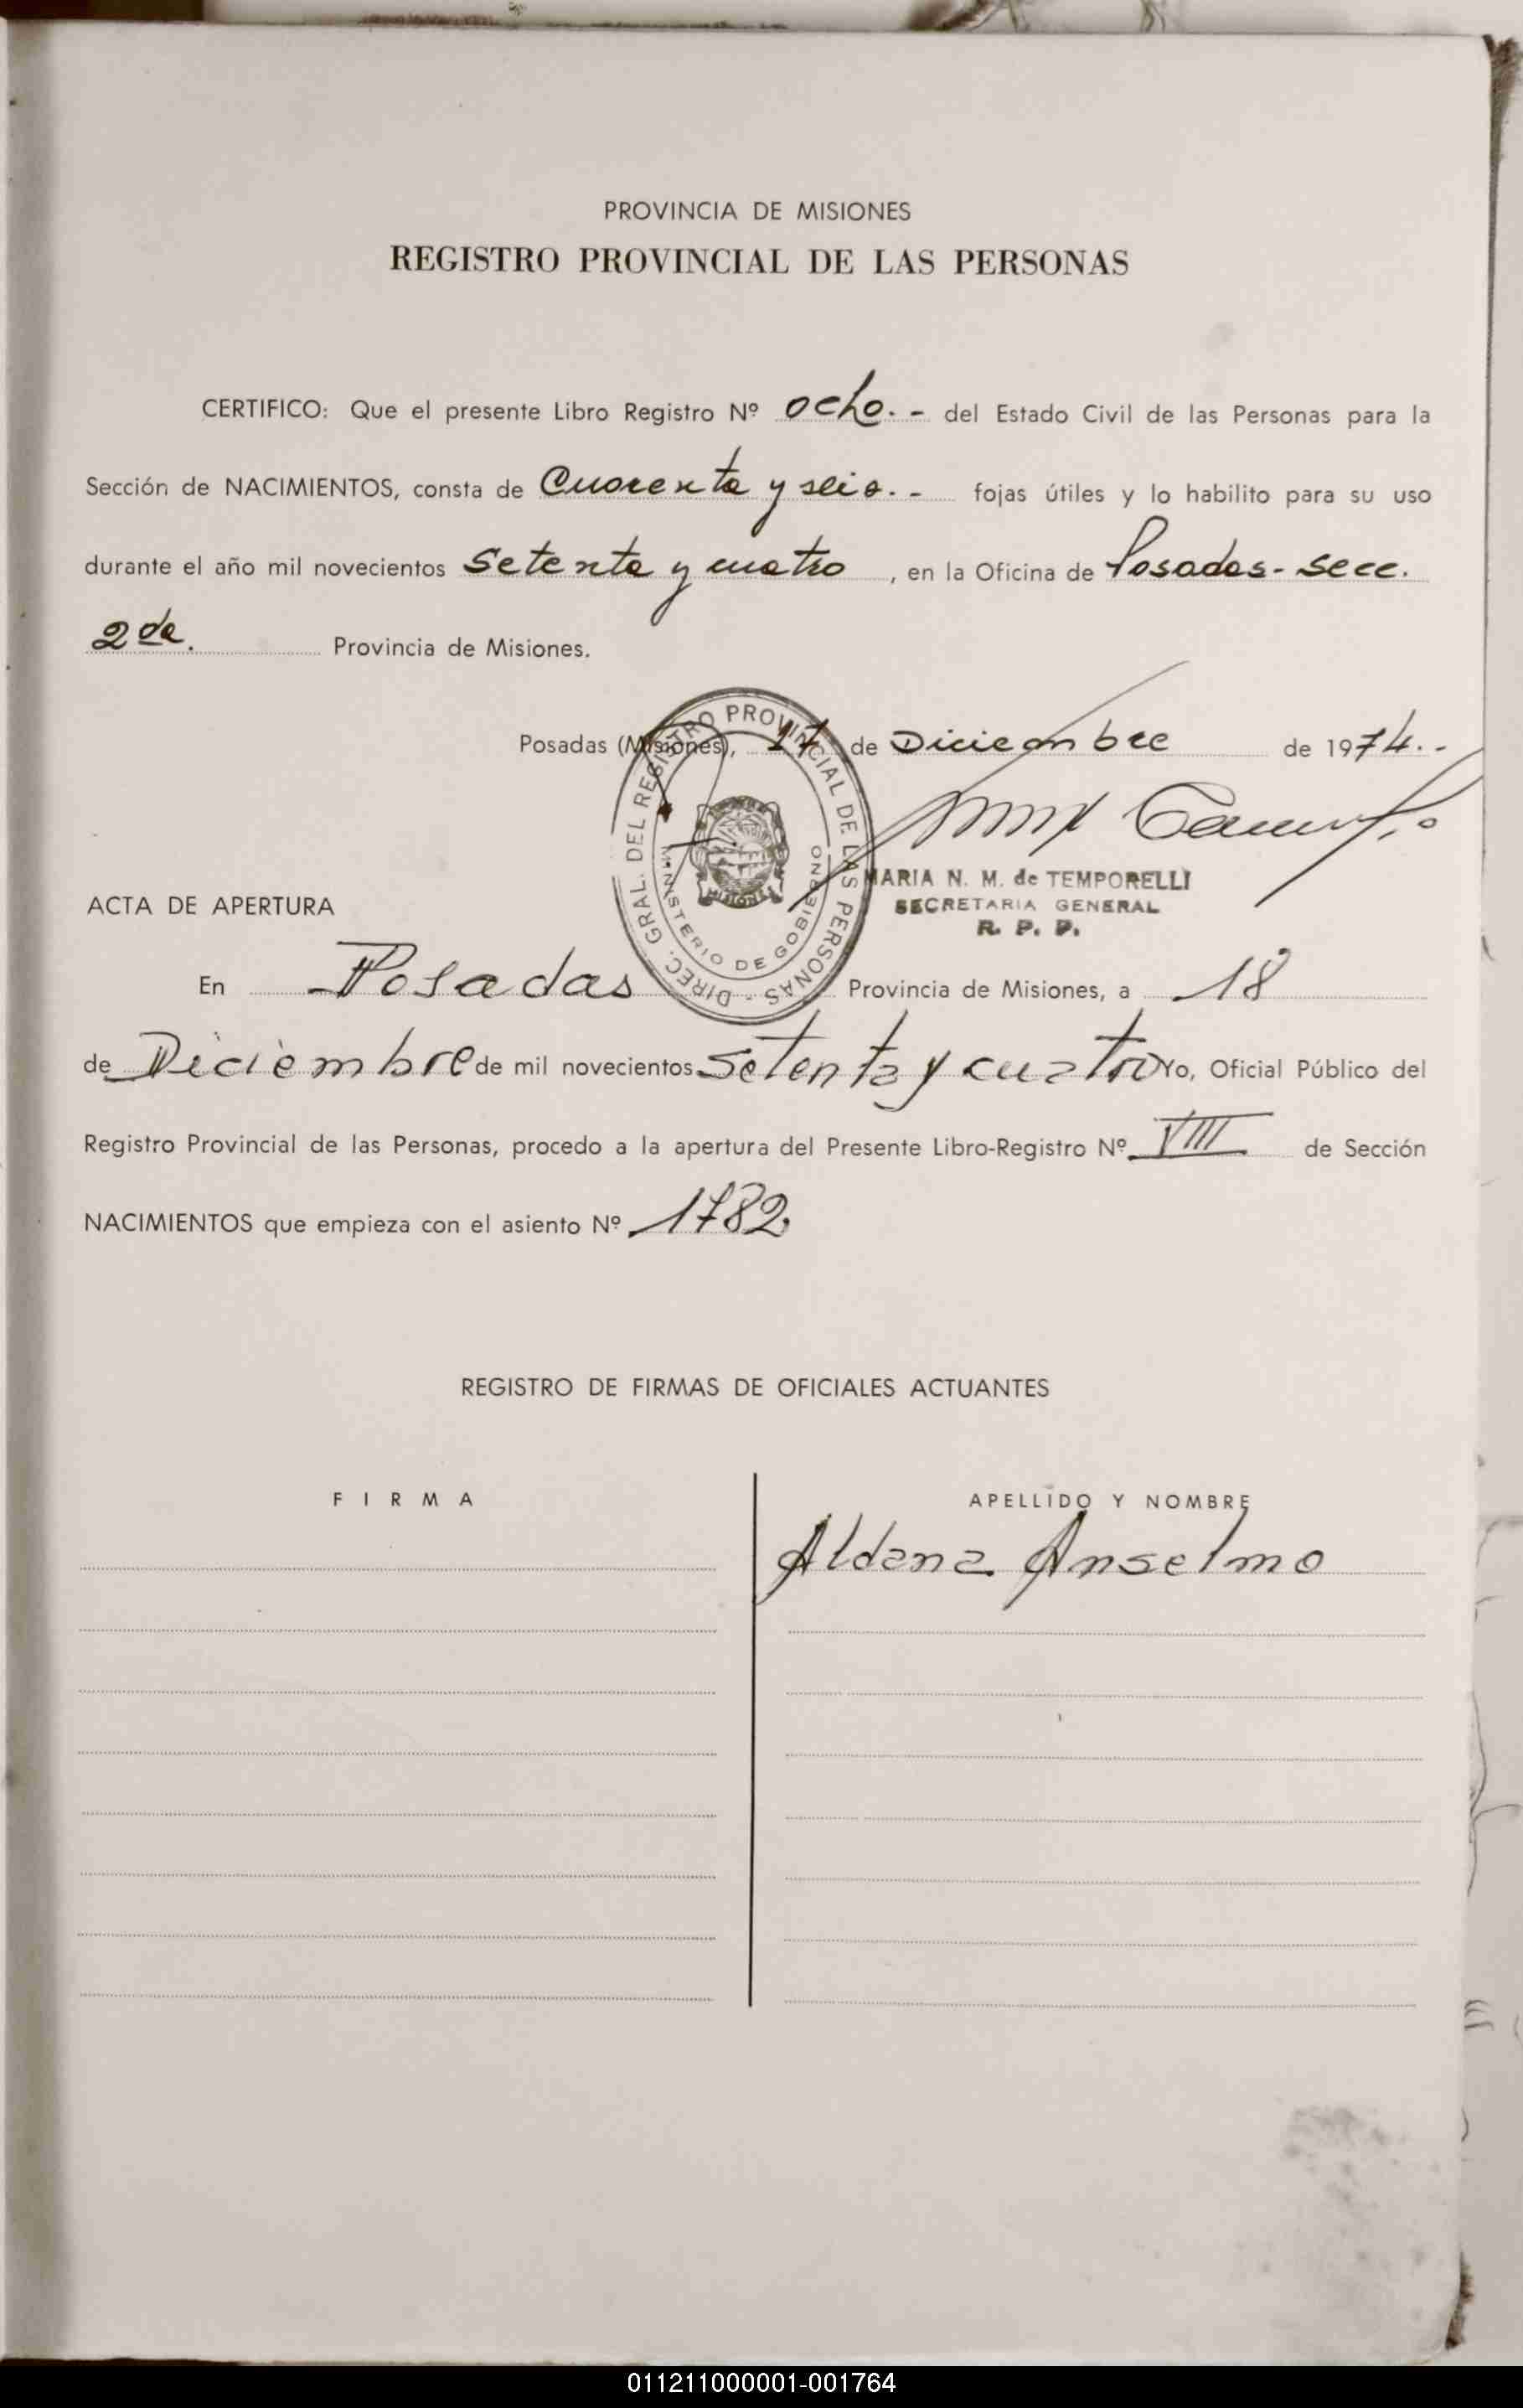 PROVINCIA DE MISIONES
REGISTRO PROVINCIAL DE LAS PERSONAS
CERTIFICO: Que el presente Libro Registro Nº ocho. - del Estado Civil de las Personas para la
Sección de NACIMIENTOS, consta de Cuarenta y seis. - fojas útiles y lo habilito para su uso
durante el año mil novecientos setenta y cuatro, en la Oficina de Posadas - Secc.
2da. Provincia de Misiones.
Posadas (Misiones), 17 de Diciembre de 1974. -
DIREC. GRAL. DEL REGISTRO PROVINCIAL DE LAS PERSONAS -
MINISTERIO DE GOBIERNO
MISIONES
MARIA N. M. de TEMPORELLI
SECRETARIA GENERAL
R. P. P.
ACTA DE APERTURA
En Posadas Provincia de Misiones, a 18
de Diciembre de mil novecientos setenta y cuatro Yo, Oficial Público del
Registro Provincial de las Personas, procedo a la apertura del Presente Libro-Registro Nº VIII de Sección
NACIMIENTOS que empieza con el asiento Nº 1782.
REGISTRO DE FIRMAS DE OFICIALES ACTUANTES
FIRMA
APELLIDO Y NOMBRE
Aldana Anselmo
011211000001-001764